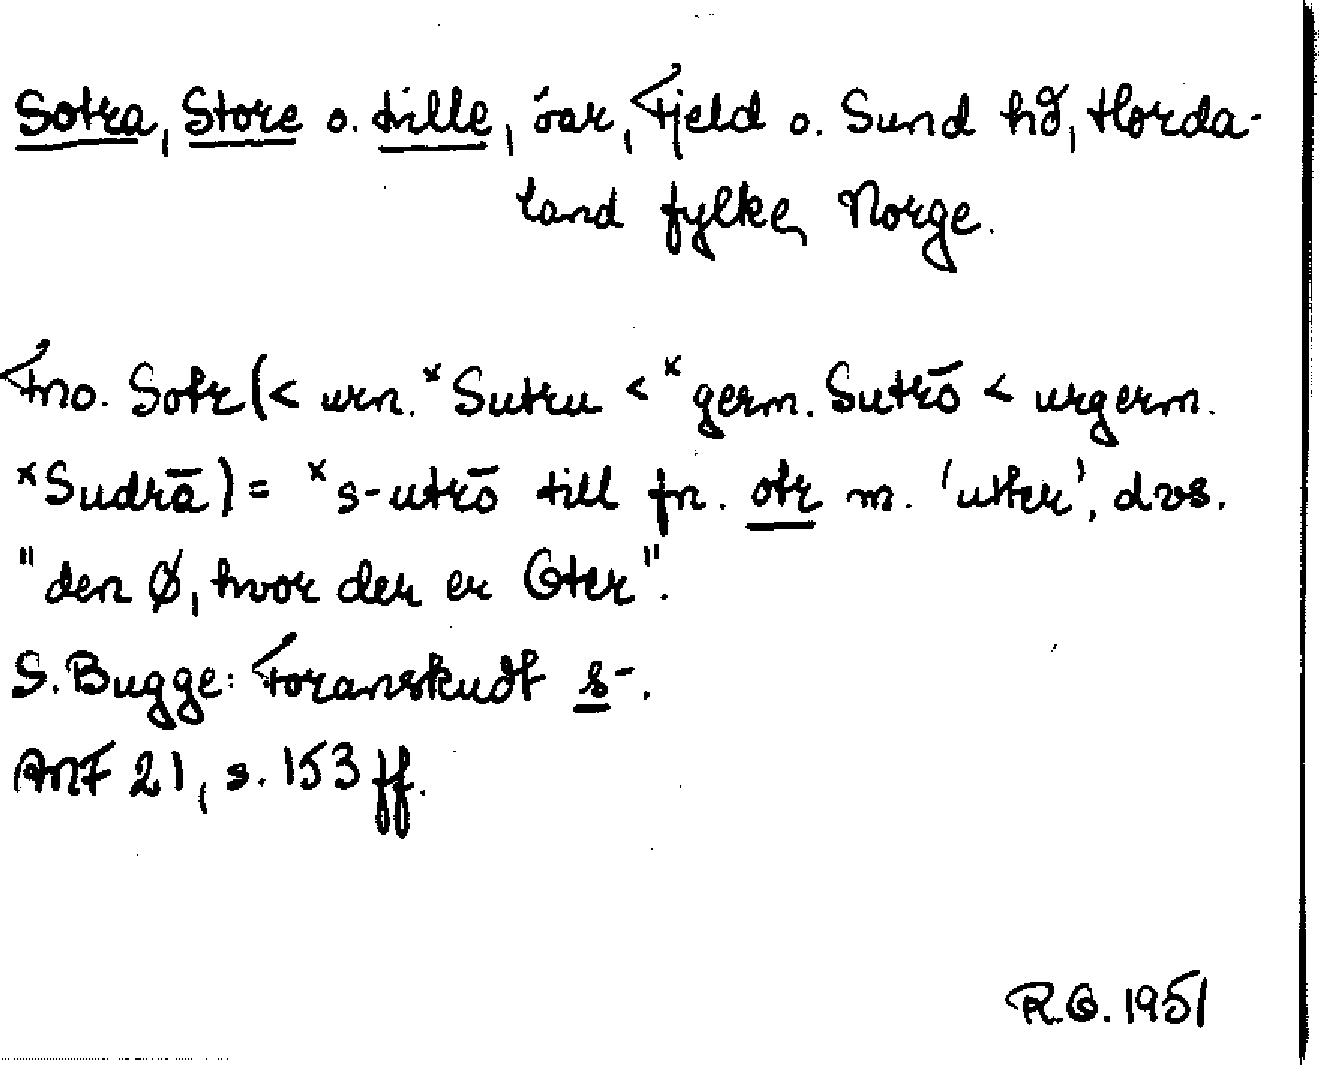 Sotra, Store o. Lille, öar, Fjeld o. Sund hd, Horda-
land fylke, Norge.
Fno. Sotr (< urn. *Sutru < *germ. Sutrō < urgerm.
*Sudrā) = *s-utrō till fn. otr m. 'utter', dvs.
"den Ø, hvor der er Oter".
S. Bugge: Foranskudt s-.
ANF 21, s. 153 ff.
R.O. 1951